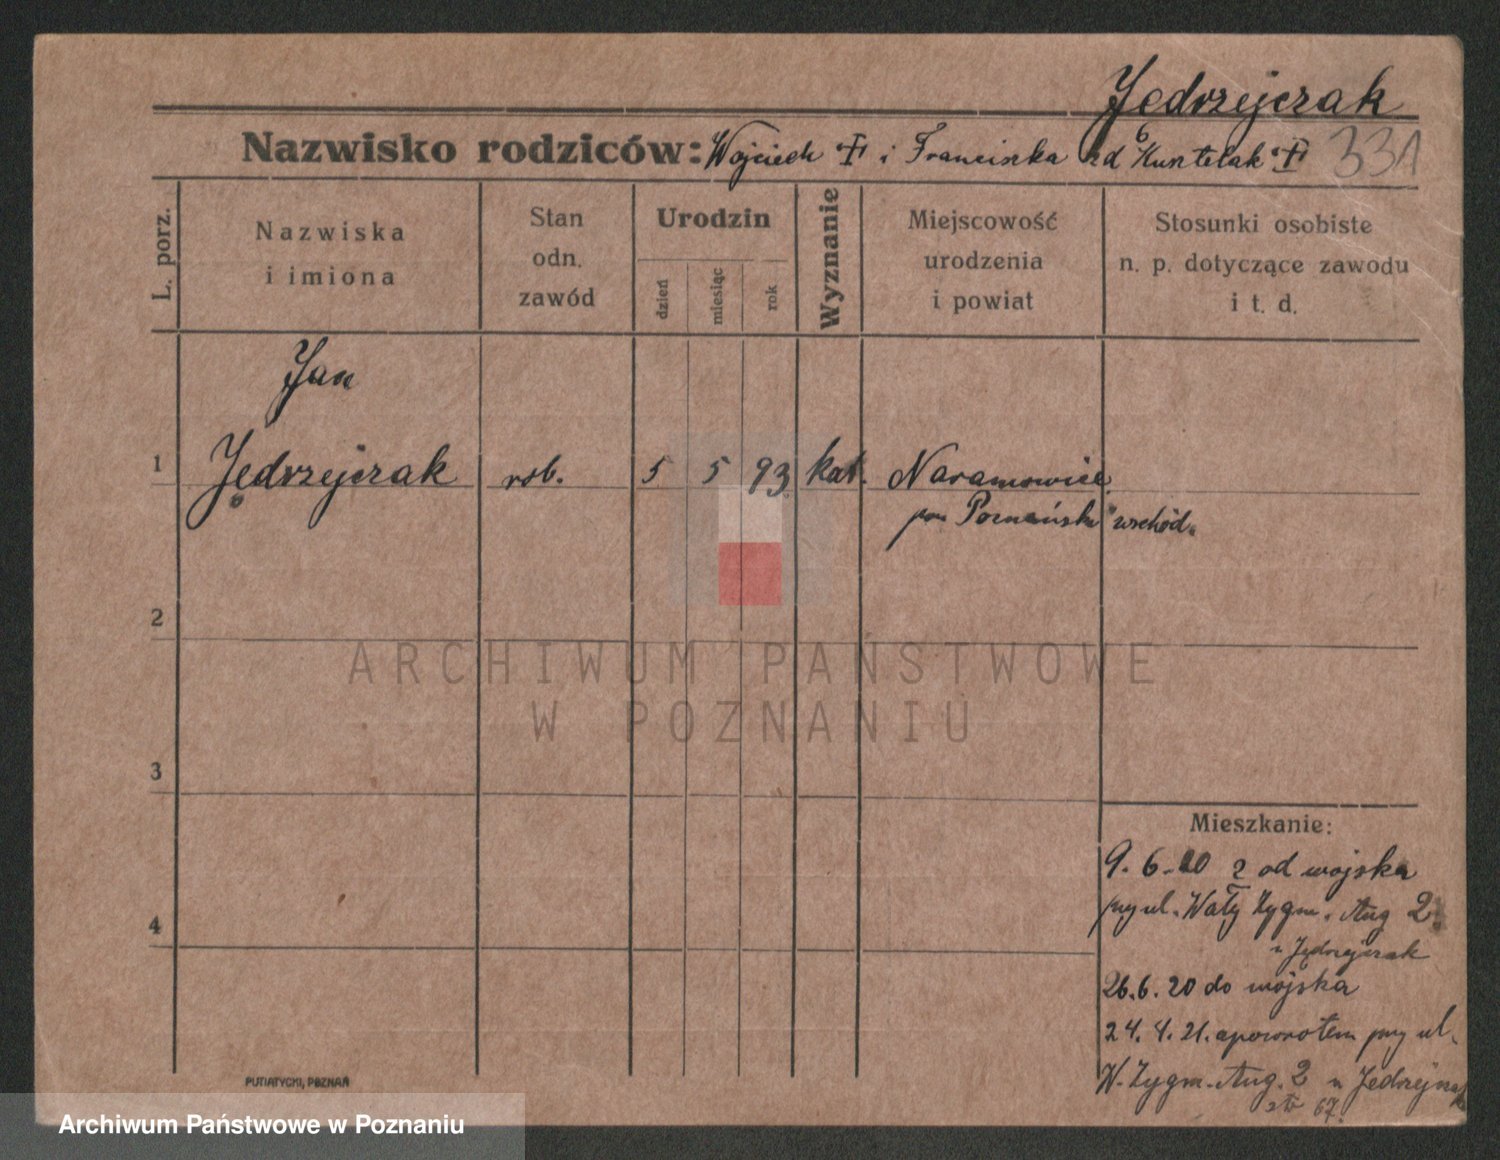 Jędrzejczak
Nazwisko rodziców: Wojciech i Franciszka zd Kusztelak 331
L. porz.
Nazwiska
i imiona
Stan
odn.
zawód
Urodzin
dzień
miesiąc
rok
Wyznanie
Miejscowość
urodzenia
i powiat
Stosunki osobiste
n. p. dotyczące zawodu
i t. d.
Jan
1 Jędrzejczak rob. 5 5 93. kat. Naramowice
pow Poznańsk wschód.
2
ARCHIWUM PAŃSTWOWE
W POZNANIU
3
4
Mieszkanie:
9. 6. 20 z od wojska
przy ul. Wały Zygm. Aug 2
u Jędrzejczak
26. 6. 20 do wojska
24. 4. 21. spowrotem przy ul.
W. Zygm. Aug. 2 u Jędrzejczak
67.
PUTIATYCKI, POZNAŃ
Archiwum Państwowe w Poznaniu